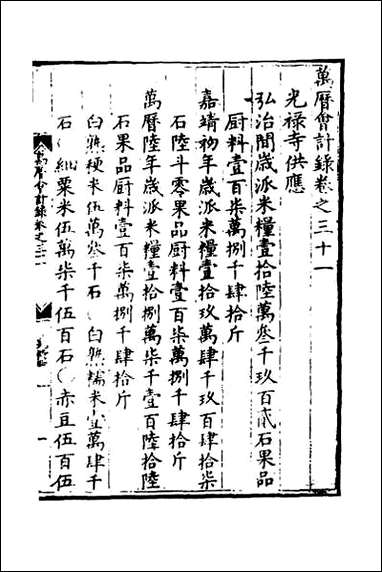 萬曆會計錄卷之三十一
光祿寺供應
弘治間歲派米糧壹拾陸萬叁千玖百貳石果品
厨料壹百柒萬捌千肆拾斤
嘉靖初年歲派米糧壹拾玖萬肆千玖百肆拾柒
石陸斗零果品厨料壹百柒萬捌千肆拾斤
萬曆陸年歲派米糧壹拾捌萬柒千壹百陸拾陸
石果品厨料壹百柒萬捌千肆拾斤
白熟粳米伍萬叁千石 白熟糯米壹萬肆千
石 細粟米伍萬柒千伍百石 赤豆伍百伍
萬曆會計錄卷之三十一
一